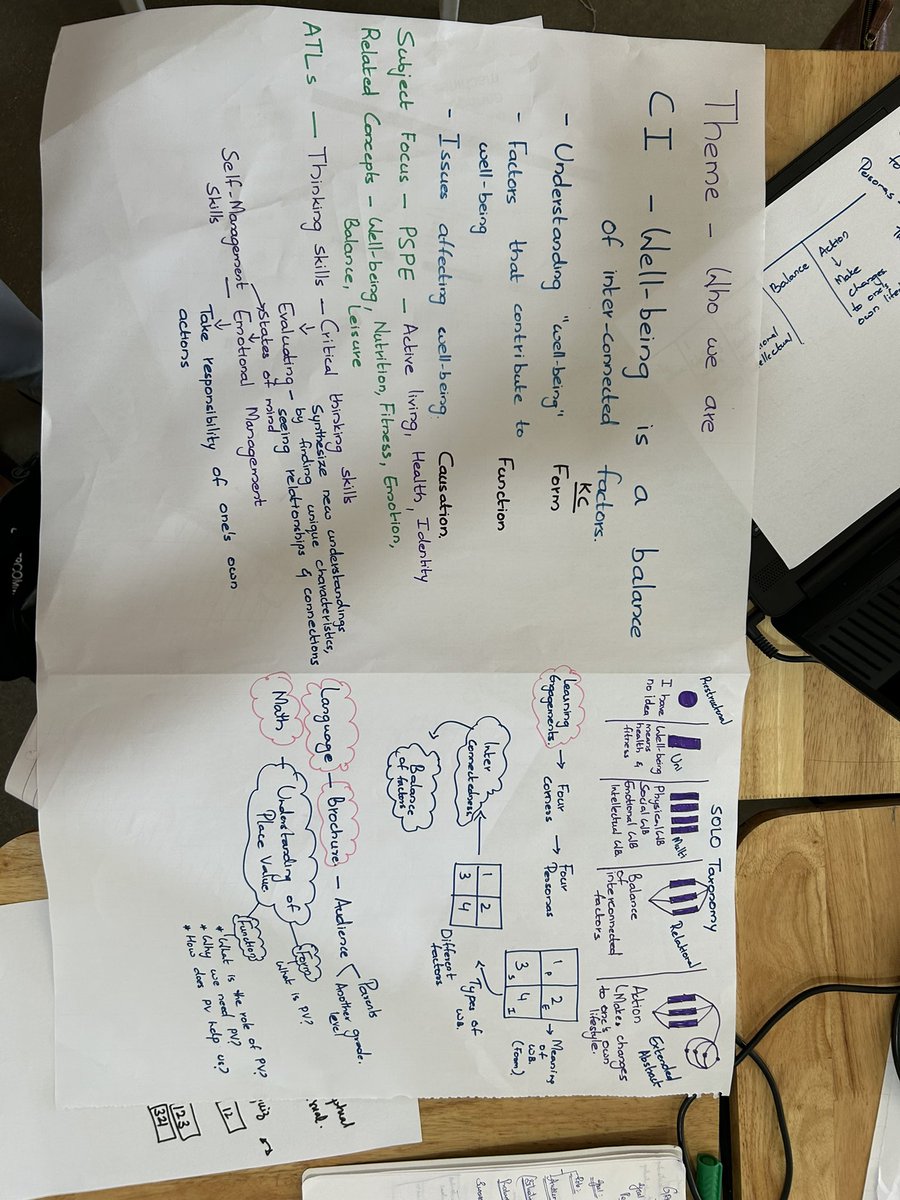 Theme - Who we are
CI - Well-being is a balance
of inter-connected factors.
KC
- Understanding "well-being" Form
- Factors that contribute to Function
well-being
- Issues affecting well-being. Causation,
Subject Focus - PSPE - Active living, Health, Identity
Related Concepts - Well-being, Nutrition, Fitness, Emotion,
Balance, Leisure
ATLs - Thinking skills - Critical thinking skills
Synthesize new understandings
by finding unique characteristics,
Evaluating - seeing relationships & connections
States of mind
Self-Management - Emotional Management
Skills
Take responsibility of one's own
actions
SOLO Taxonomy
Prestructural
Uni
Multi
Relational
Extended
Abstract
I have
no idea
Well-being
means
health &
fitness
Physical WB
Social WB
Emotional WB
Intellectual WB
Balance
of
interconnected
factors
Action
Makes changes
to one's own
lifestyle.
Learning
Engagements.
→ Four
corners
→ Four
Personas
1 P
2 E
3 S
4 I
→ Meaning
of
WB
(Form)
Types of
WB.
Inter
connectedness
1 2
3 4
Different
factors
Balance
of factors
Language - Brochure - Audience
Parents
Another grade
level
Math - Understanding of
Place Value
Form
What is PV?
Function
* What is the role of PV?
* Why we need PV?
* How does PV help us?
Personas
Action
↓
Make
changes
to one's
own
Balance
12
123
321